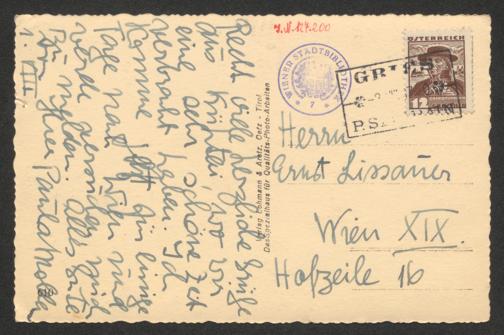 Recht viele herzliche Grüße
aus Kühtai, wo wir
eine sehr schöne Zeit
verbracht haben. Ich
komme jetzt für einige
Tage nach und
werde
Alles Gute
Ihre Paula
1. VIII.
I.N. 127.200
WIENER STADTBIBLIOTHEK
7
ÖSTERREICH
12
GRIES
P.S.
Verlag Lohmann & Arntz, Oetz - Tirol
Das Spezialhaus für Qualitäts-Photo-Arbeiten
Herrn
Ernst Lissauer
Wien XIX.
Hofzeile 16